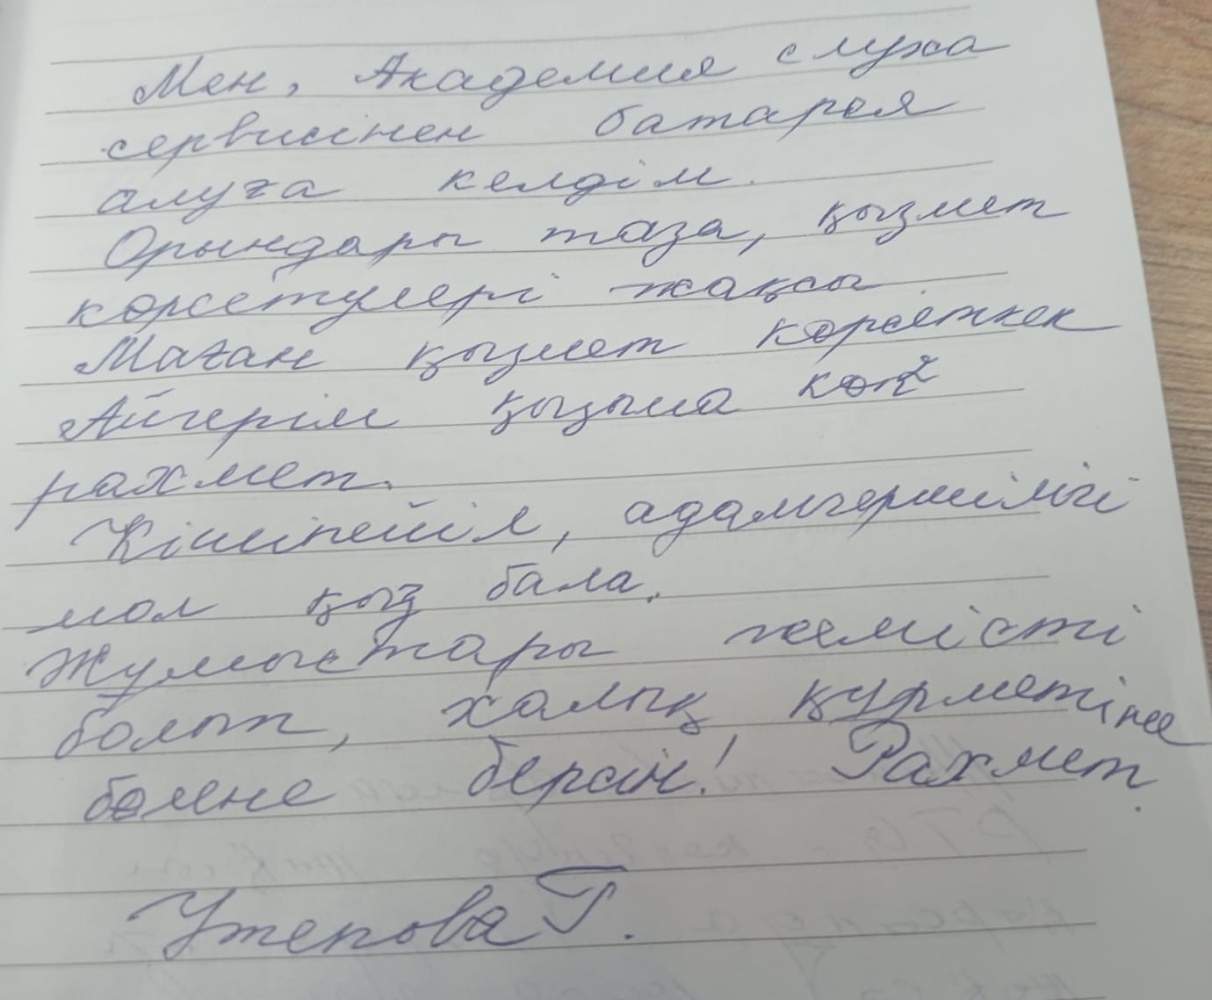 Мен, Академия слуха
сервисінен батарея
алуға келдім.
Орындары таза, қызмет
көрсетулері жақсы
Маған қызмет көрсеткен
Айгерім қызыма көп²
рахмет.
Кішіпейіл, адамгершілігі
мол қыз бала.
Жұмыстары жемісті
болып, халық құрметіне
бөлене берсін! Рахмет.
Утепова Г.